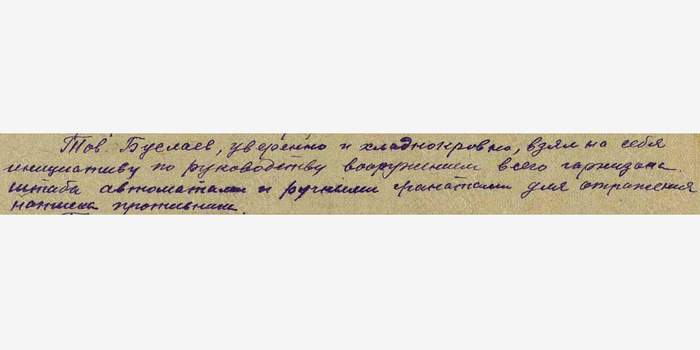 Тов. Буслаев, уверенно и хладнокровно, взял на себя
инициативу по руководству вооружением всего гарнизона
штаба автоматами и ручными гранатами для отражения
натиска противника.